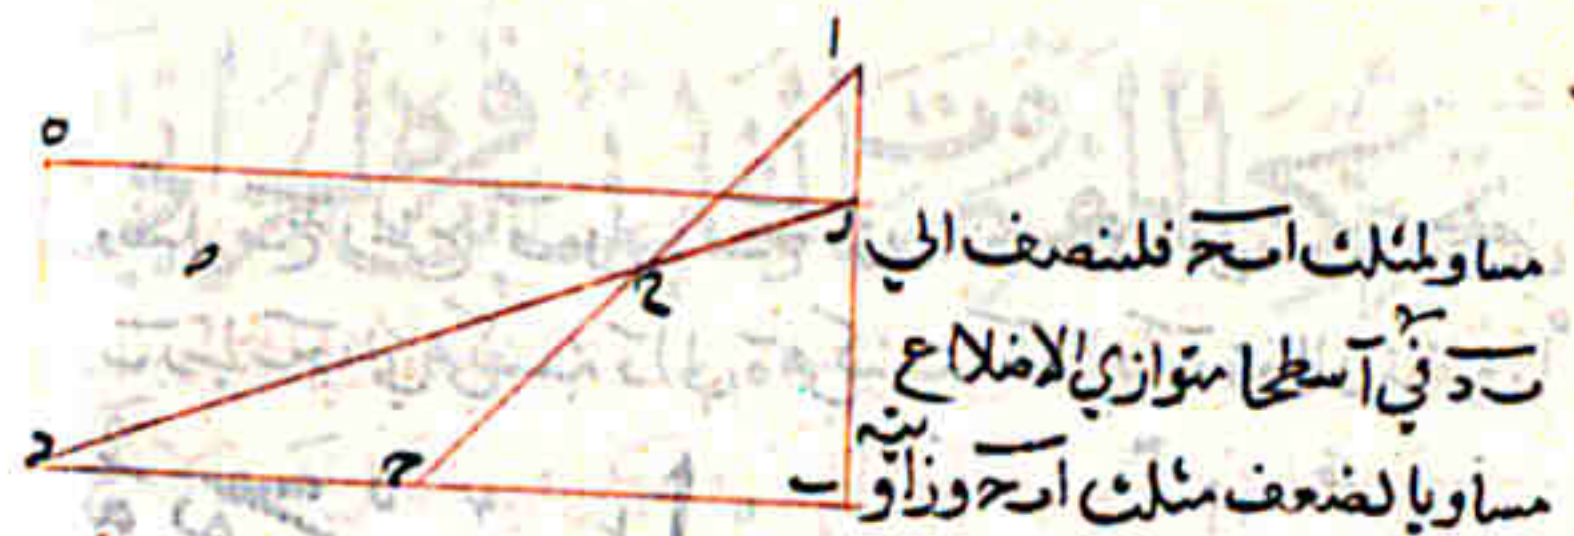 ا
ه
ر
ح
د
ح
ب
مساو لمثلث ا ب ح فلننصف الي
ب د في آ سطحا متوازي الاضلاع
مساويا لضعف مثلث ا ر ح وزاوية